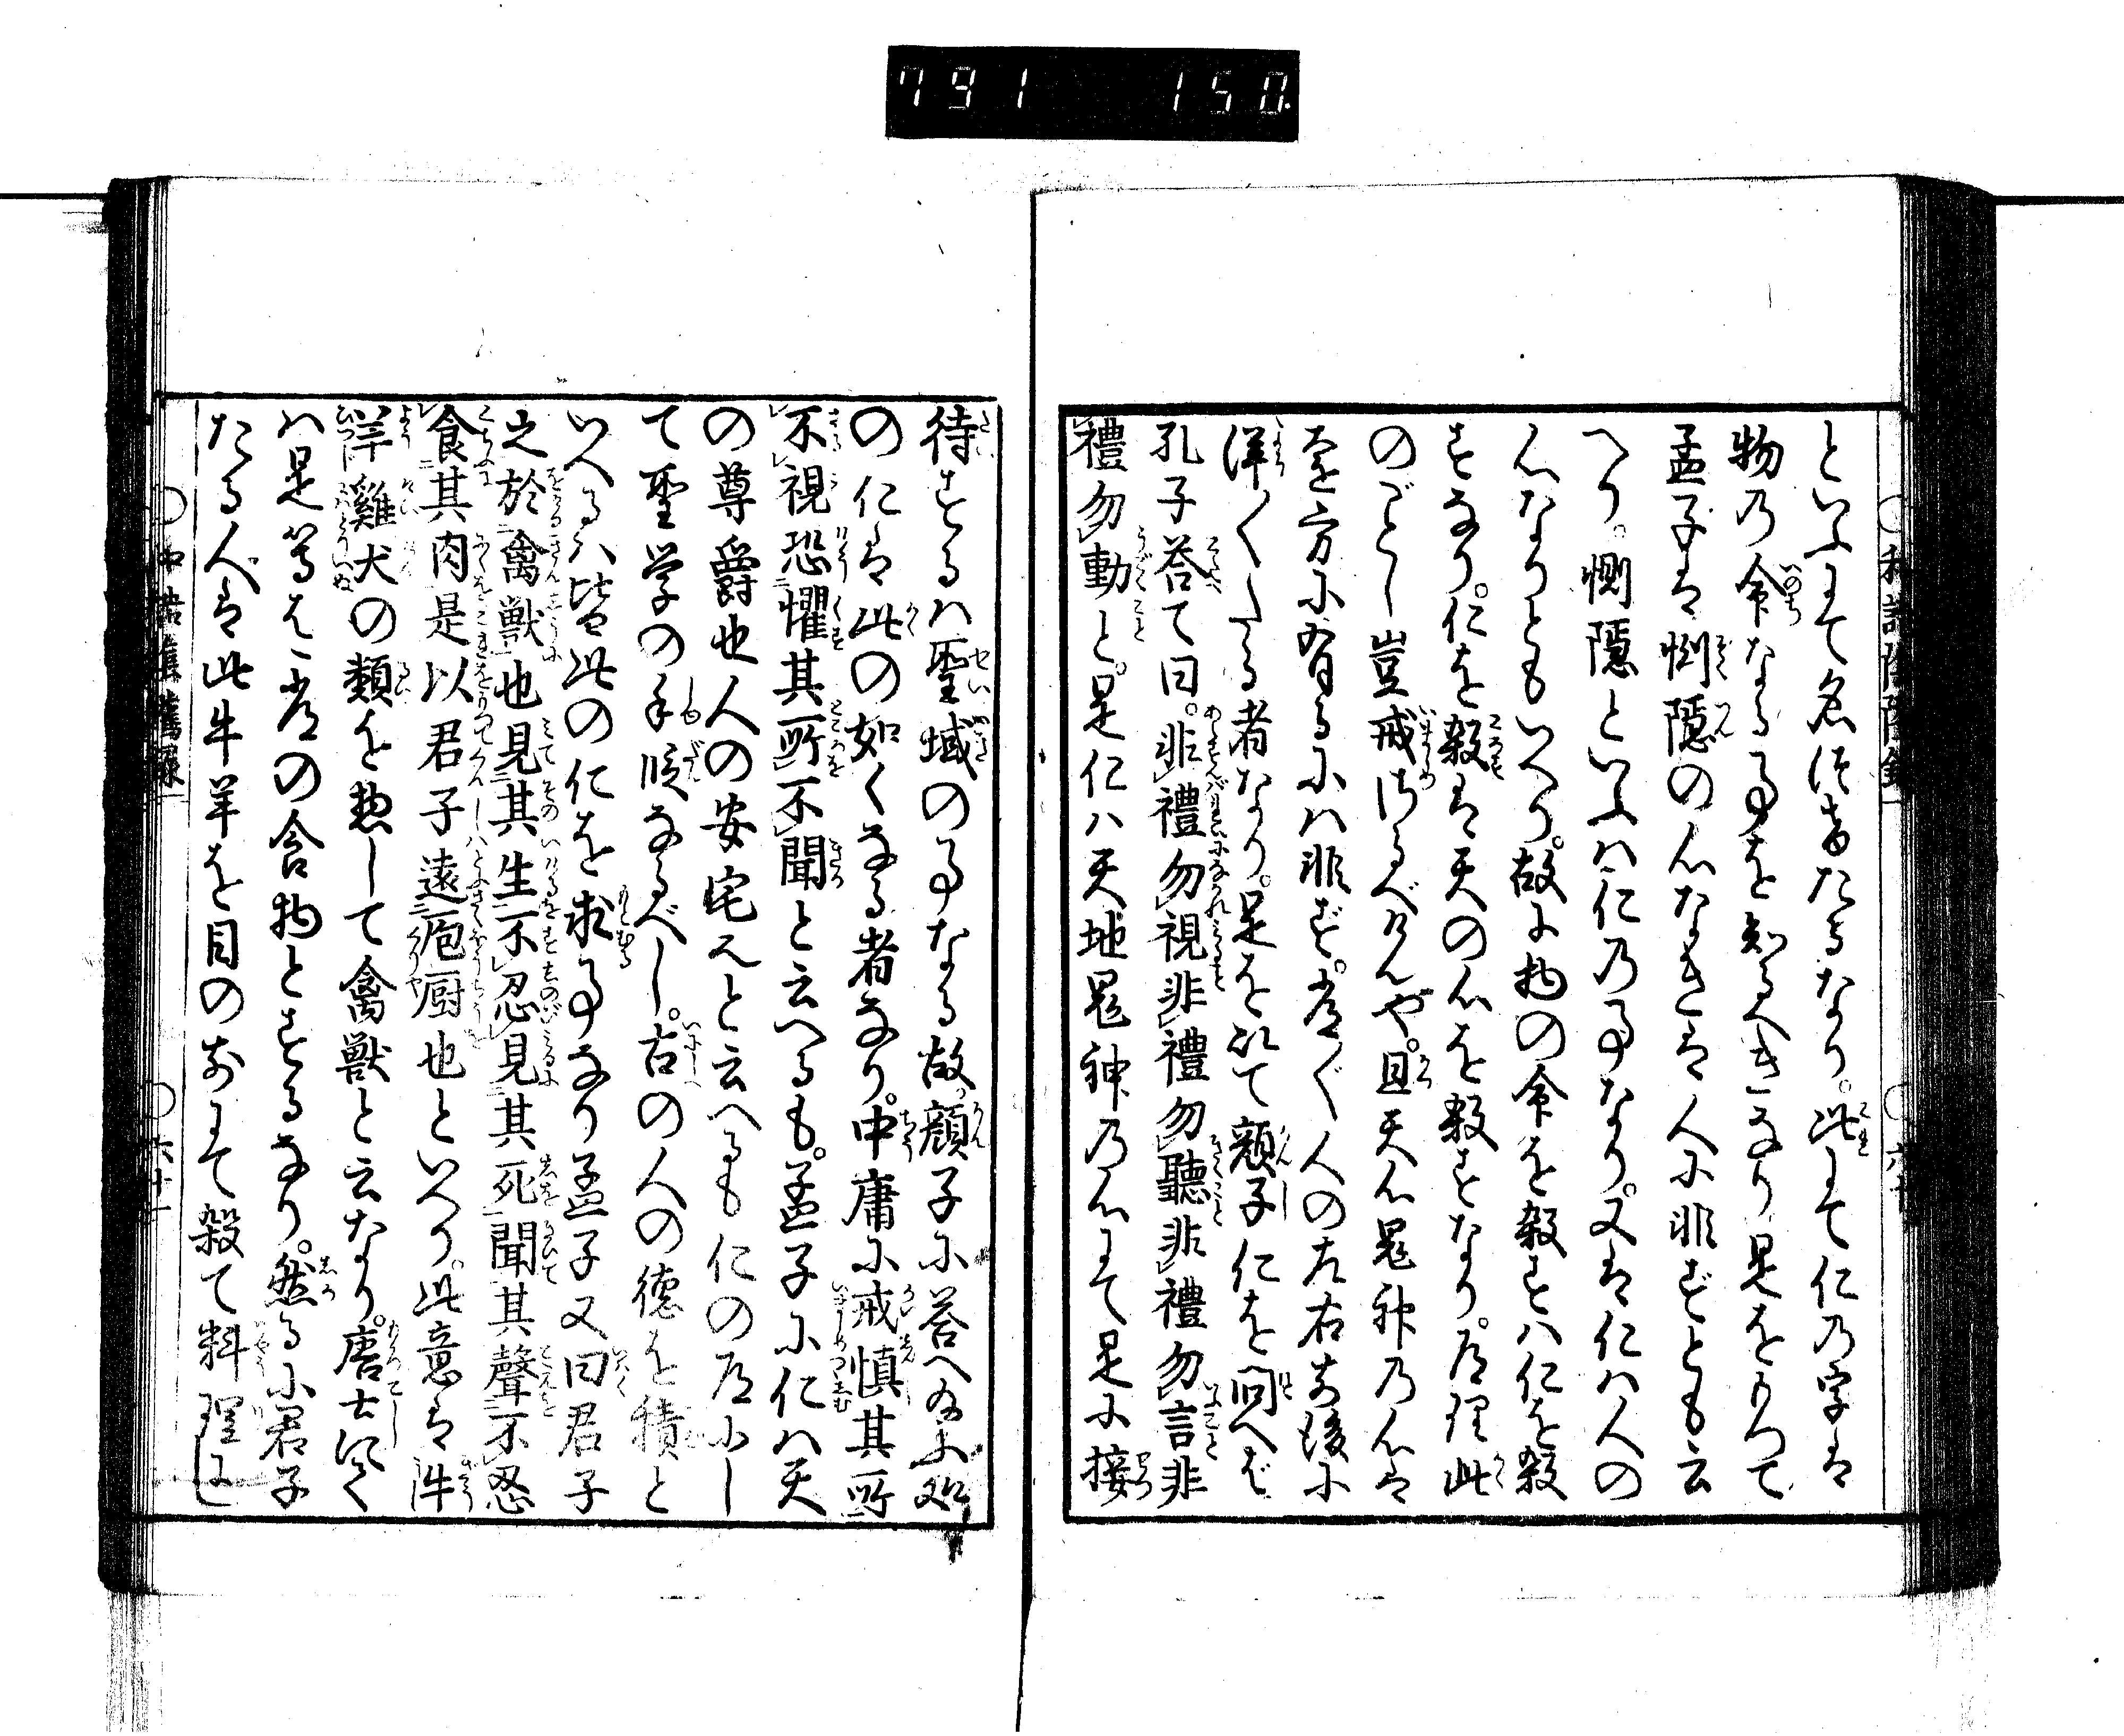 791 150
といふにて名付けたるなり。此にて仁乃字は
物乃命なる事を知るべきなり是をもつて
孟子は惻隠の心なきは人に非ずとも云
へり。惻隠といふハ仁乃事なり。又は仁ハ人の
心なりともいへり。故に物の命を殺すハ仁を殺
すなり。仁を殺は天の心を殺すなり。道理此
のごとし豈戒ざるべけんや。且天心鬼神乃心は
を方に有るにハ非ず。常〱人の左右前後に
洋〱たる者なり。是を以て顔子仁を問へば
孔子荅て曰。非禮勿視非禮勿聽非禮勿言非
禮勿動と。是仁ハ天地鬼神乃心にて是に接
待するハ聖域の事なる故。顔子に荅へ給ふ処
の仁は此の如くなる者なり。中庸に戒慎其所
不視恐懼其所不聞と云へるも。孟子に仁ハ天
の尊爵也人の安宅也と云へるも仁の道にし
て聖学の手段なるべし。古の人の徳を積と
いへるハ皆此の仁を求事なり孟子又曰君子
之於禽獣也見其生不忍見其死聞其聲不忍
食其肉是以君子遠庖厨也といへり。此意は牛
羊雞犬の類を惣して禽獣と云なり。唐土にて
ハ是等を常の食物とするなり。然るに君子
たる人は此牛羊を目の前にて殺て料理に
六十一